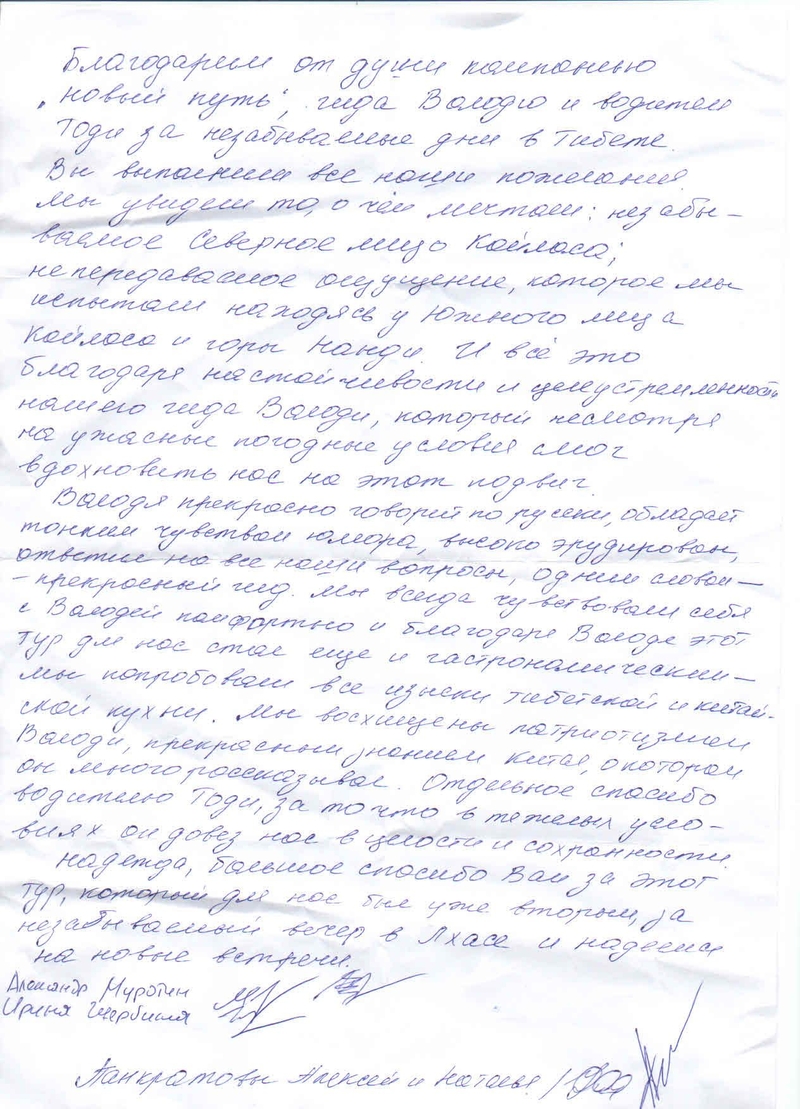 Благодарим от души компанию
"новый путь", гида Володю и водителя
Тоди за незабываемые дни в Тибете.
Вы выполнили все наши пожелания.
Мы увидели то, о чём мечтали: незабы-
ваемое Северное лицо Кайласа;
непередаваемое ощущение, которое мы
испытали находясь у Южного лица
Кайласа и горы Нанди. И всё это
благодаря настойчивости и целеустремленности
нашего гида Володи, который несмотря
на ужасные погодные условия смог
вдохновить нас на этот подвиг.
Володя прекрасно говорит по русски, обладает
тонким чувством юмора, высоко эрудирован,
ответил на все наши вопросы, одним словом—
-прекрасный гид. Мы всегда чувствовали себя
с Володей комфортно и благодаря Володе этот
тур для нас стал еще и гастрономическим—
мы попробовали все изыски тибетской и китай-
ской кухни. Мы восхищены патриотизмом
Володи, прекрасным знанием Китая, о котором
он много рассказывал. Отдельное спасибо
водителю Тоди, за то что в тяжелых усло-
виях он довез нас в целости и сохранности.
Надежда, большое спасибо Вам за этот
тур, который для нас был уже вторым, за
незабываемый вечер в Лхасе и надеемся
на новые встречи.
Александр Муротин
Ирина Щербинина
Панкратовы Алексей и Наталья